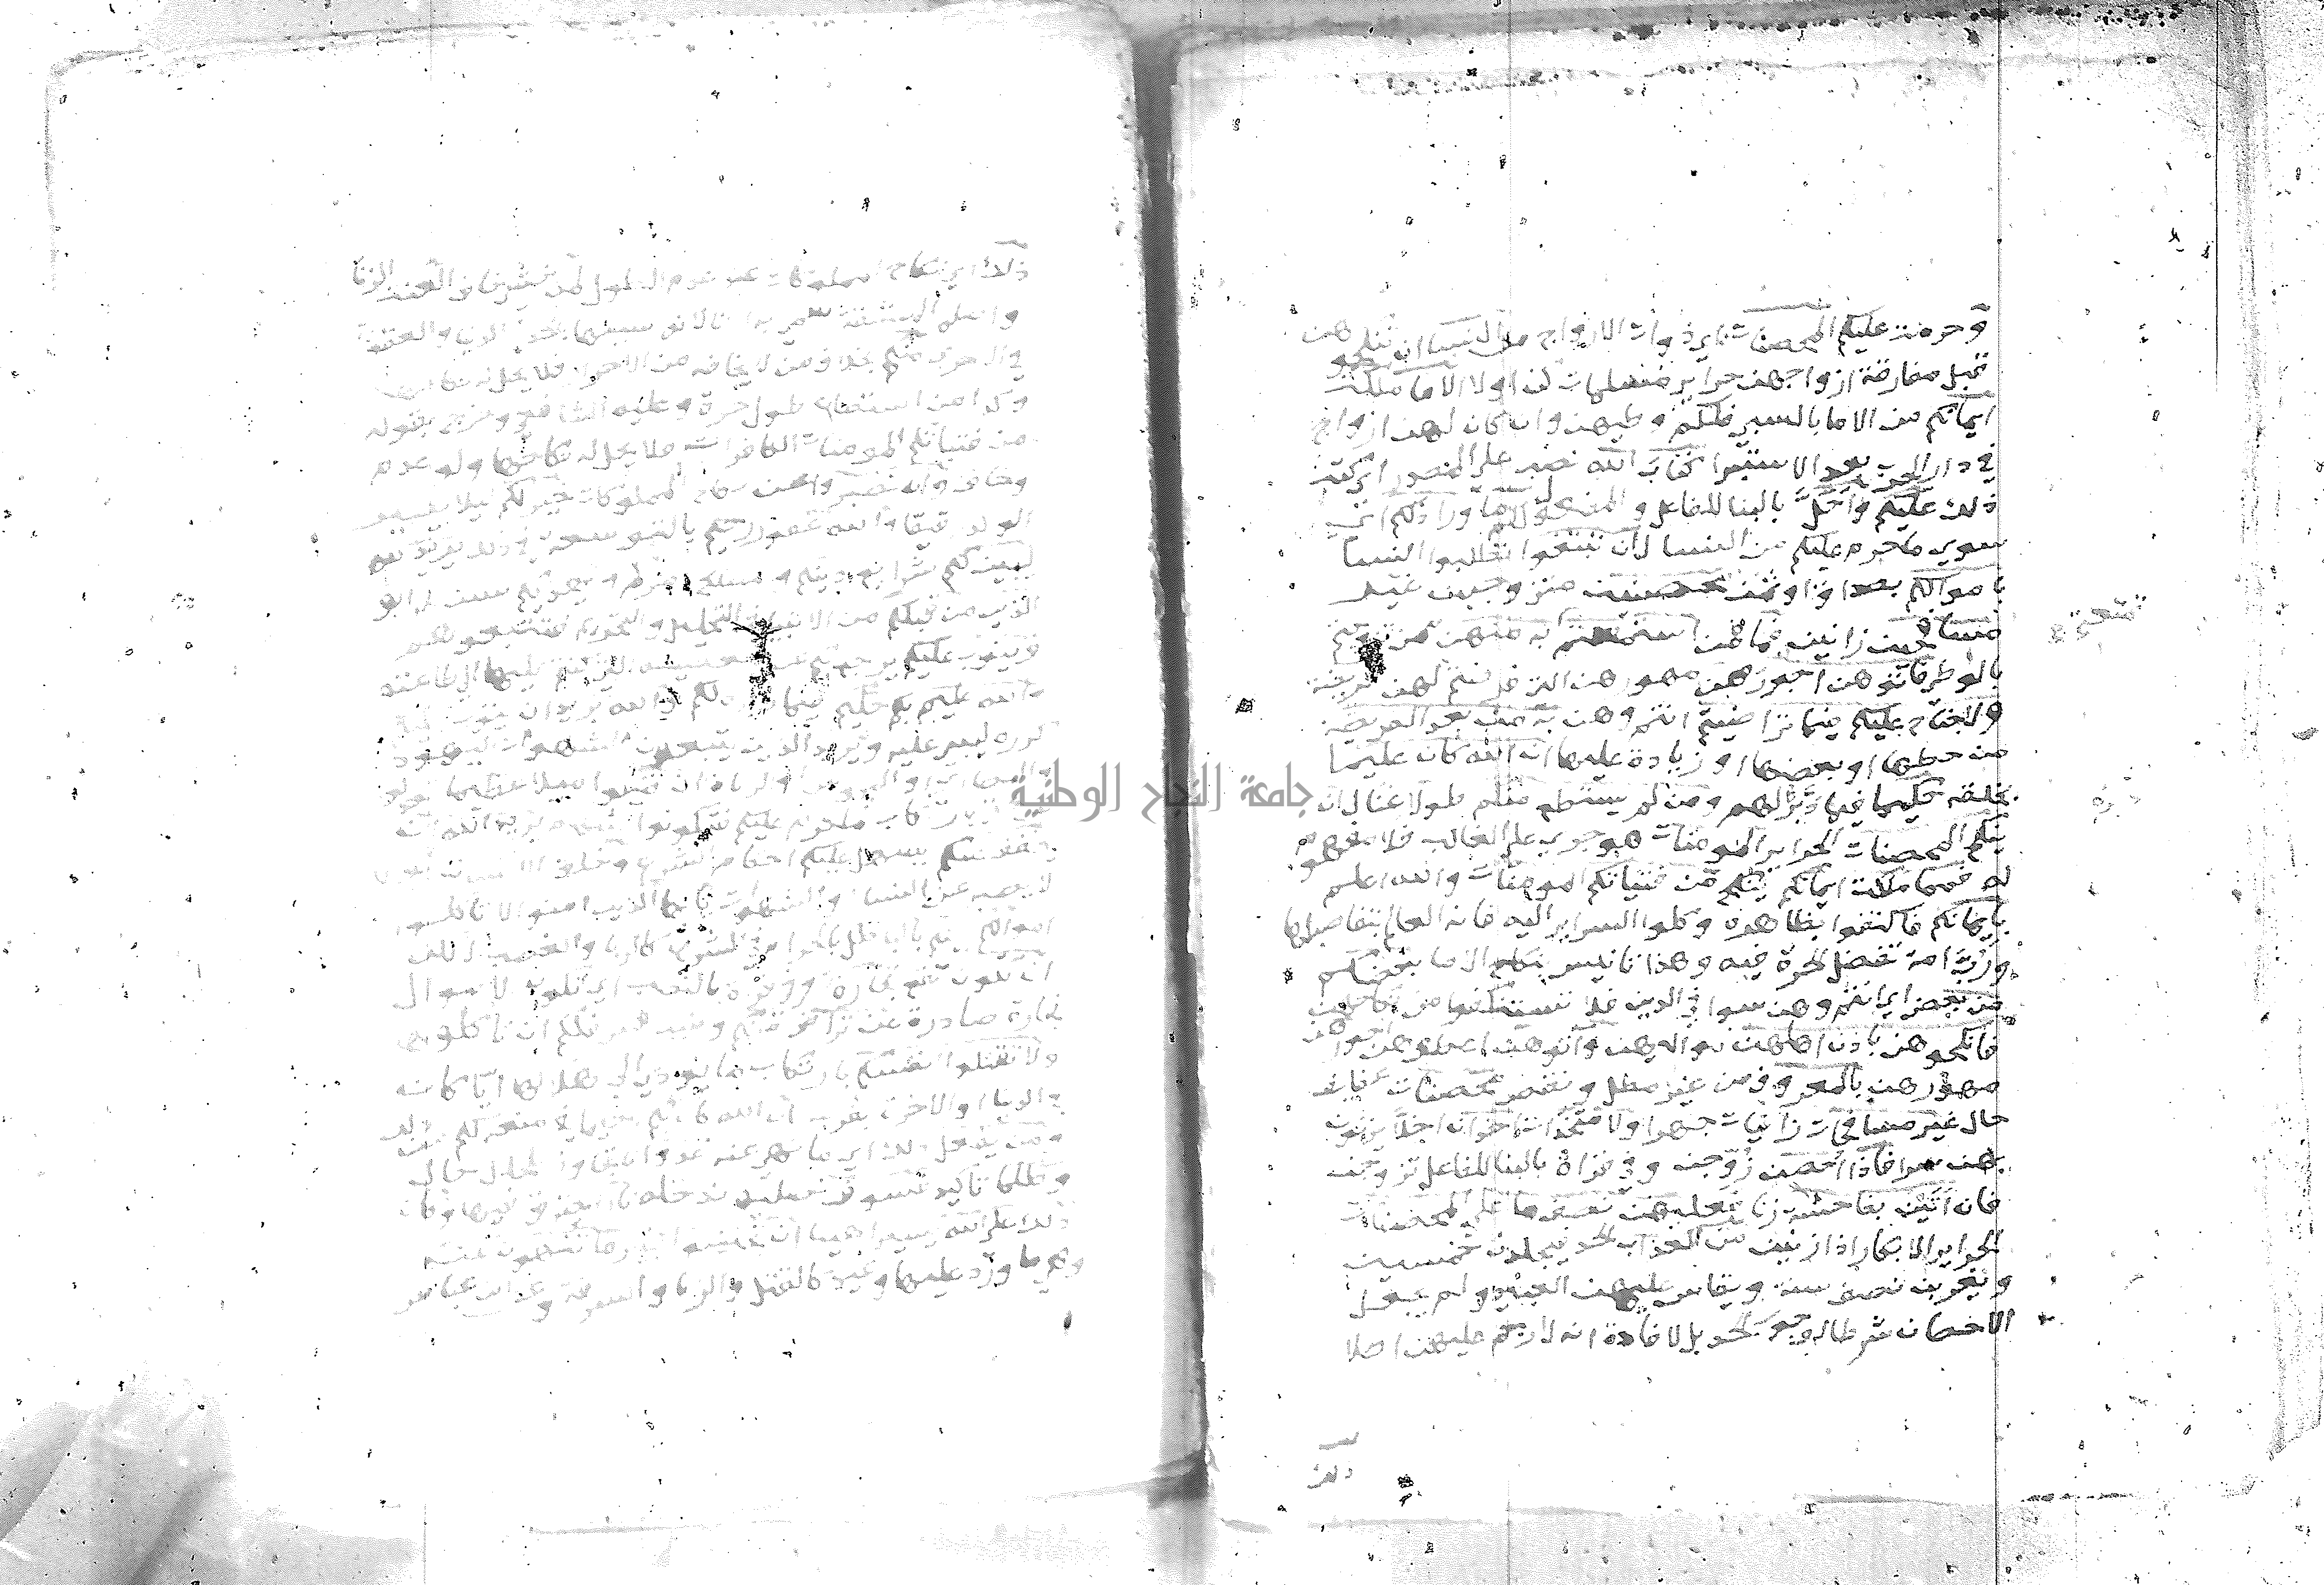 وحرمت عليكم المحصنات اي ذوات الازواج من النساء ان تنكحوهن
قبل مفارقة ازواجهن حراير مسلمات كن او لا الا ما ملكت
ايمانكم من الاما بالسبي فلكم وطيهن وان كان لهن ازواج
في دار الحرب بعد الاستبرا كتاب الله نصب على المصدر اي كتب
ذلك عليكم واحل بالبنا للفاعل والمفعول لكم ما ورا ذلكم اي
سوي ما حرم عليكم من النسا لان تبتغوا تطلبوا النسا
باموالكم بصداق او ثمن محصنين متزوجين غير
مسافحين زانين فما فمن استمتعتم به منهن ممن تزوجتم
تمتعتم
بالوطي فاتوهن اجورهن مهورهن التي فرضتم لهن فريضة
ولا جناح عليكم فيما تراضيتم انتم وهن به من بعد الفريضة
من حطها او بعضها او زيادة عليها ان الله كان عليما
بخلقه حكيما فيما دبره لهم ومن لم يستطع منكم طولا غنا لان
ينكح المحصنات الحراير المومنات هو جري على الغالب فلا مفهوم
له فمما ملكت ايمانكم ينكح من فتياتكم المومنات والله اعلم
بايمانكم فاكتفوا بظاهره وكلوا السراير اليه فانه العالم بتفاصيلها
ورب امة تفضل الحرة فيه وهذا تانيس بنكاح الاما بعضكم
من بعض اي انتم وهن سوا في الدين فلا تستنكفوا من نكاحهن
فانكحوهن باذن اهلهن مواليهن وآتوهن اعطوهن اجورهن
مهورهن بالمعروف من غير مطل ونقص محصنات عفايف
حال غير مسافحات زانيات جهرا ولا متخذات اخدان اخلا يزنون
بهن سرا فاذا احصن زوجن وفي قراة بالبنا للفاعل تزوجن
فان اتين بفاحشة زنا فعليهن نصف ما على المحصنات
الحراير الابكار اذا زنين من العذاب الحد فيجلدن خمسين
ويغربن نصف سنة ويقاس عليهن العبيد ولم يجعل
الاحصان شرطا لوجوب الحد بل لافادة انه لا رجم عليهن اصلا
ذلك
ذلك اي نكاح المملوكات عند عدم الطول لمن خشي خاف العنت الزنا
واصله المشقة سمي به الزنا لانه سببها بالحد في الدنيا والعقوبة
في الاخرى منكم بخلاف من لا يخافه من الاحرار فلا يحل له نكاحها
وكذا من استطاع طول حرة وعليه الشافعي وخرج بقوله
من فتياتكم المومنات الكافرات فلا يحل له نكاحها ولو عدم
وخاف وان تصبروا عن نكاح المملوكات خير لكم ليلا يصير
الولد رقيقا والله غفور رحيم بالتوسعة في ذلك يريد الله
ليبين لكم شرايع دينكم ومصالح امركم ويهديكم سنن طرايق
الذين من قبلكم من الانبيا في التحليل والتحريم فتتبعوهم
ويتوب عليكم يرجع بكم عن معصيته التي كنتم عليها الى طاعته
والله عليم بكم حكيم فيما دبره لكم والله يريد ان يتوب عليكم
كرره ليبني عليه ويريد الذين يتبعون الشهوات اليهود
جامعة النجاح الوطنية
لا يصبر عن النسا والشهوات يا ايها الذين امنوا لا تاكلوا
اموالكم بينكم بالباطل بالحرام في الشرع كالربا والغصب الا لكن
ان تكون تقع تجارة وفي قراة بالنصب اي تكون الاموال
تجارة صادرة عن تراض منكم وطيب نفس فلكم ان تاكلوها
ولا تقتلوا انفسكم بارتكاب ما يودي الى هلاكها ايا كان
في الدنيا او الاخرة بقرينة ان الله كان بكم رحيما في منعه لكم من ذلك
ومن يفعل ذلك اي ما نهي عنه عدوانا تجاوزا للحلال حال
وظلما تاكيد فسوف نصليه ندخله نارا يحترق فيها وكان
ذلك على الله يسيرا هينا ان تجتنبوا كباير ما تنهون عنه
وهي ما ورد عليها وعيد كالقتل والزنا والسرقة وعن ابن عباس